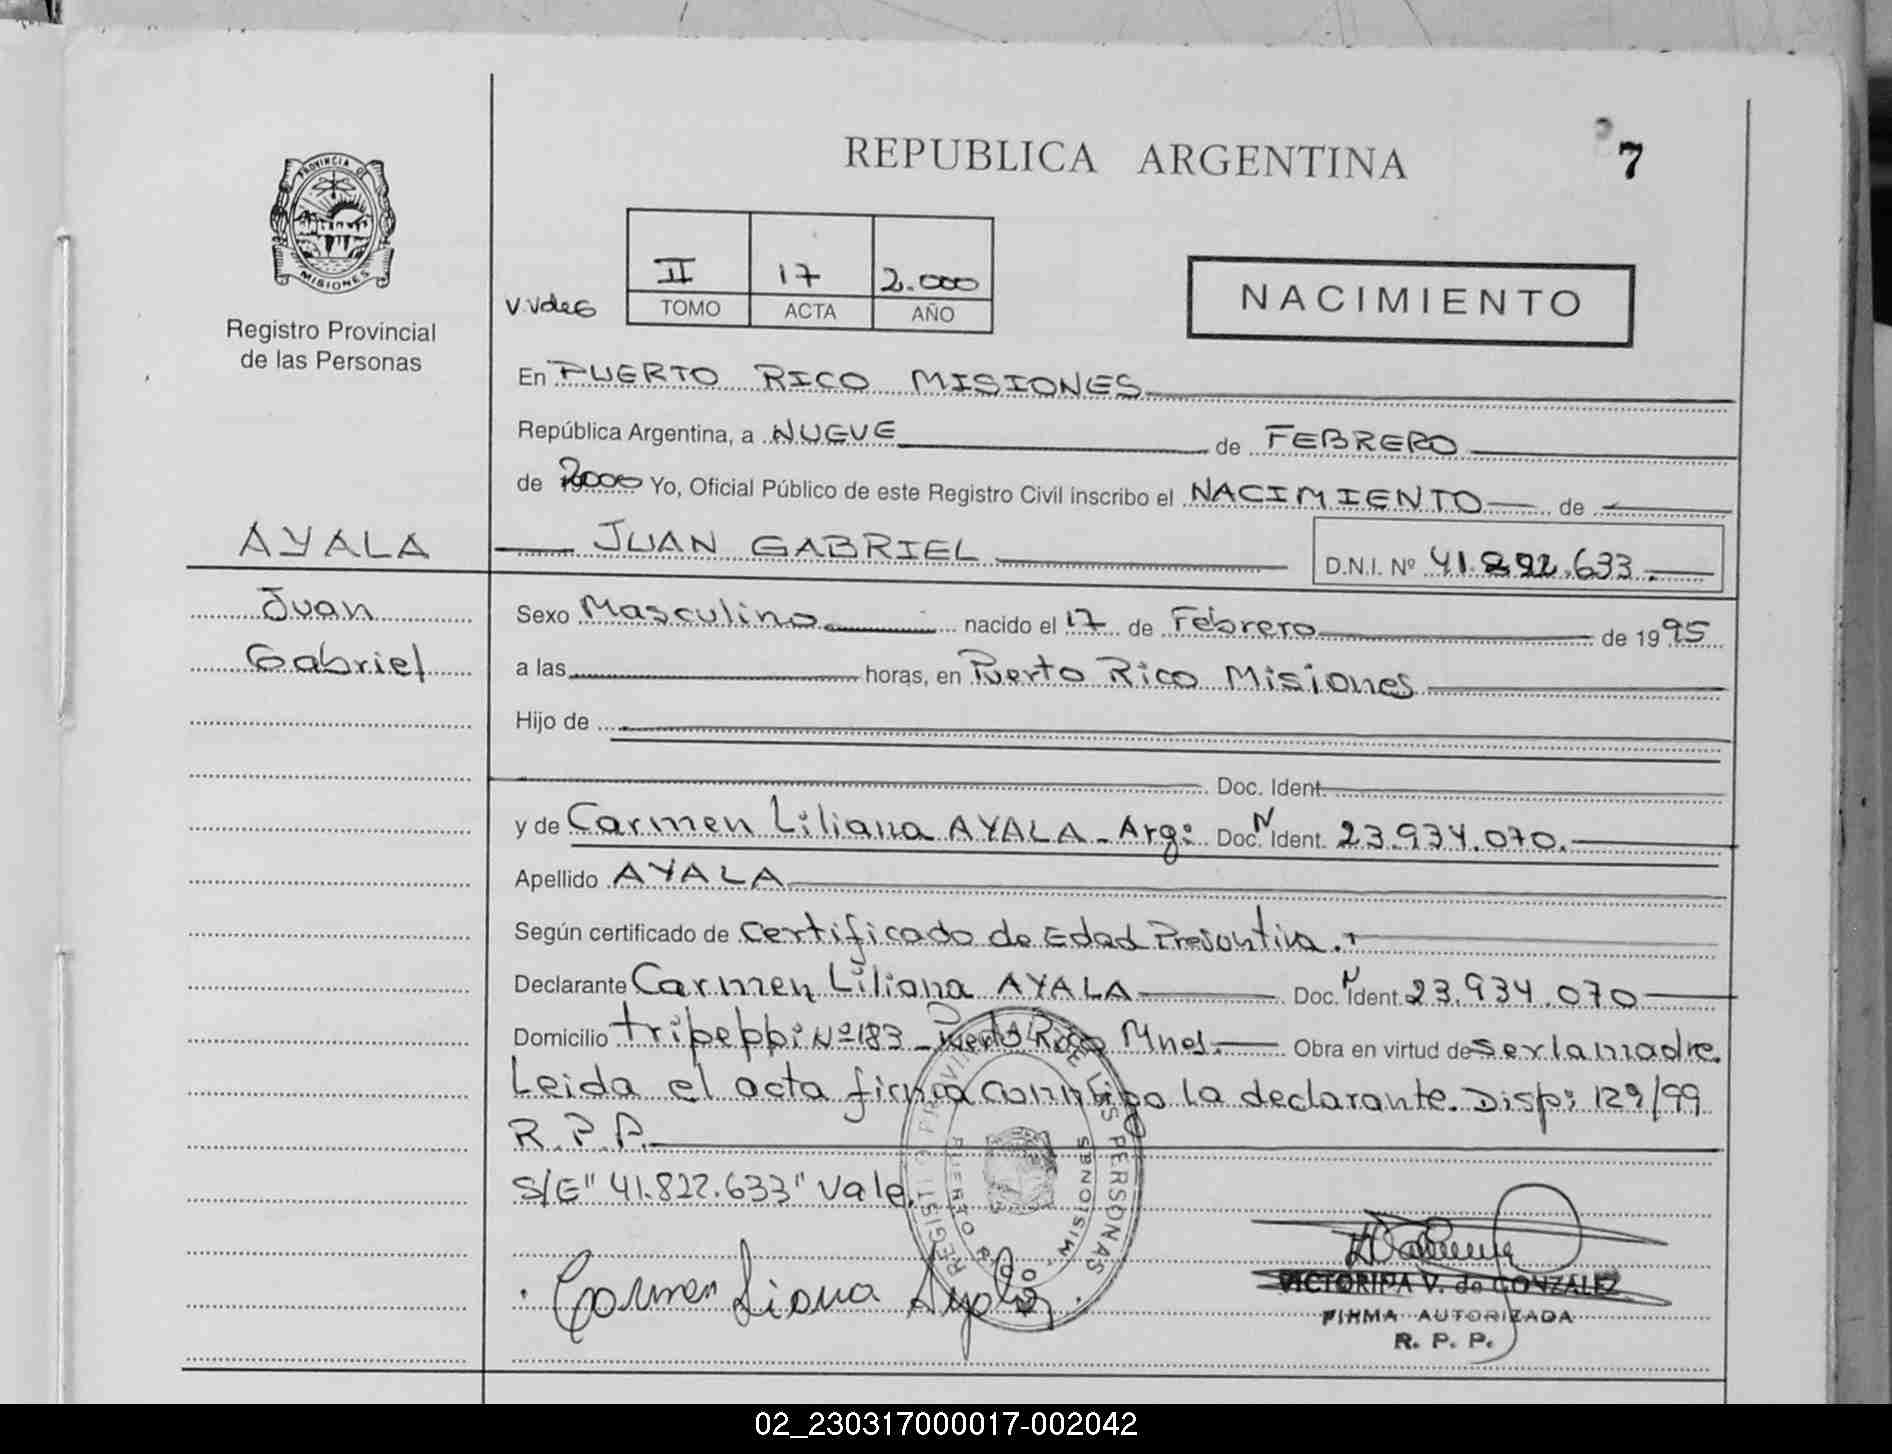 REPUBLICA ARGENTINA
7
PROVINCIA DE
MISIONES
Registro Provincial
de las Personas
II 17 2.000
TOMO ACTA AÑO
NACIMIENTO
En PUERTO RICO MISIONES
República Argentina, a NUEVE de FEBRERO
de 2000 Yo, Oficial Público de este Registro Civil inscribo el NACIMIENTO de
AYALA JUAN GABRIEL D.N.I. Nº 41.822.633.
Juan Sexo Masculino nacido el 17 de Febrero de 1995
Gabriel a las horas, en Puerto Rico Misiones
Hijo de
Doc. Ident.
y de Carmen Liliana AYALA - Arg: Doc. N Ident. 23.934.070.
Apellido AYALA
Según certificado de Certificado de Edad Presuntiva.
Declarante Carmen Liliana AYALA Doc. N Ident. 23.934.070
Domicilio tripeppi Nº 183 - Puerto Rico Mnes. Obra en virtud de ser la madre.
Leida el acta firma conmigo la declarante. Disp: 129/99
R.P.P.
S/E "41.822.633" Vale.
REGISTRO PROVINCIAL DE LAS PERSONAS
PUERTO RICO MISIONES
Carmen Liliana Ayala
VICTORINA V. de GONZALEZ
FIRMA AUTORIZADA
R. P. P.
02_230317000017-002042